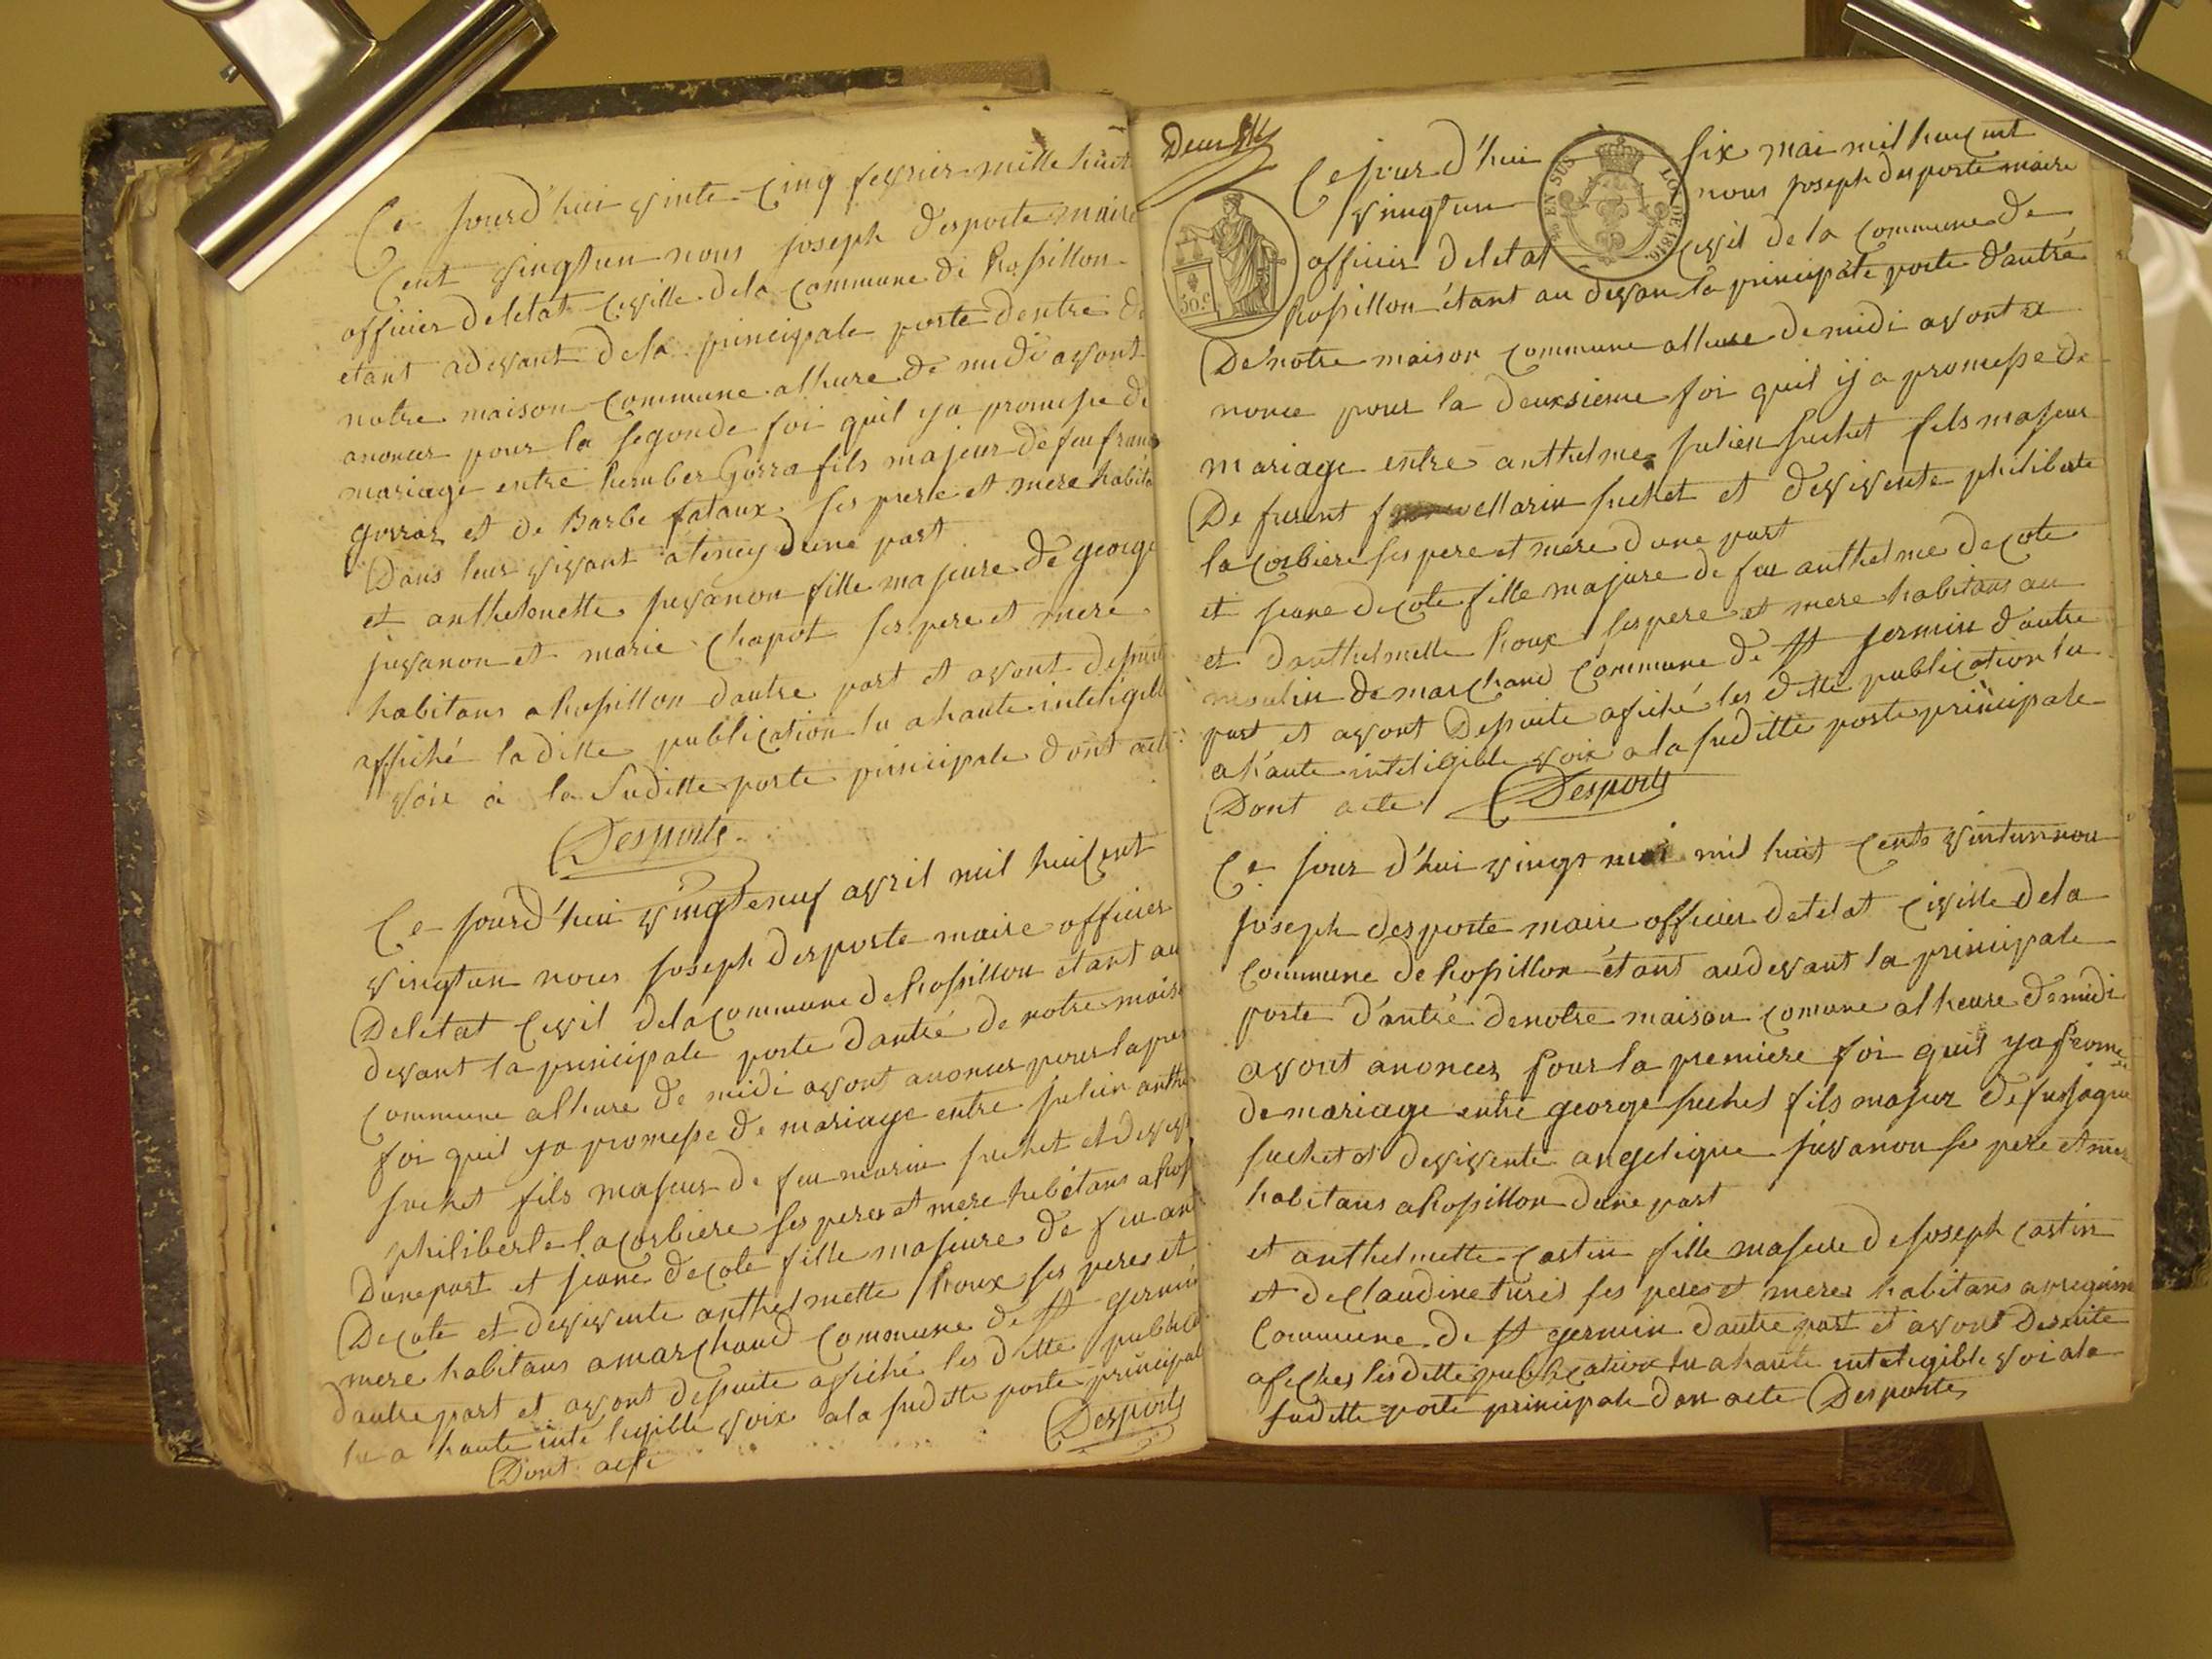 Ce Jourd'hui vinte Cinq fevrier mille huit
Cent vingtun nous Joseph desporte maire
officier deletat Civille dela Commune de Rossillon
etant adevant dela principale porte dentre de
notre maison Commune alhure de midi avont
anoncer pour la segonde foi quil ya promesse de
mariage entre humber Gorra fils majeur de feu franc
gorraz et de Barbe fataux ses pere et mere habita
Dans leur vivant a teney Dune part
et anthelmette Juvanon fille majeure de george
juvanon et marie Chapot ses pere et mere
habitans a Rossillon dautre part et avont desuite
affiché laditte publication lu a haute inteligible
voix à la Suditte porte principale dont acte
Desporte
Ce Jourd'hui vingteneuf avril mil huicent
vingtun nous Joseph desporte maire officier
Deletat Civil dela Commune de Rossillon etant au
devant la principale porte dantré de notre maiso
Commune alhure de midi avont anoncer pour la pre
foi quil ya promesse de mariage entre Julien anthe
suchet fils majeur de feu marin suchet et de viv
philiberte lacorbiere ses peres et mere hebitans a Ross
Dune part et jeane decote fille majeure de feu an
Decote et devivente anthelmette Roux ses peres et
mere habitans a marchand Commune de St germin
dautre part et avont desuite afiché les ditte publica
lu a haute inteligible voix ala suditte porte principal
Dont acte Desporte
Deux
Ce Jour d'hui six mai mil huicent
vingtun nous Joseph desporte maire
officier deletat Civil de la Commune de
Rossillon étant au devan la principale porte d'antré
De notre maison Commune alheure de midi avont a
nonce pour la deuxsieme foi quil ij a promesse de
mariage entre anthelme Julien suchet fils majeur
De furent marin suchet et devivente philiberte
la Corbiere ses pere et mere dune part
et jeane decote fille majure de feu anthelme decote
et danthelmette Roux ses pere et mere habitans au
moulin de marchand Commune de St jermin dautre
part et avont Desuite afiché les ditte publication lu
a haute inteligible voix a la suditte porte principale
Dont acte Desporte
EN SUS
LOI DE 1816
50.c
Ce jour d'hui vingt mai mil huit Cents vintun nou
Joseph desporte maire officier deletat Civille dela
Commune de Rossillon étant audevant la principale
porte d'antré denotre maison comune alheure de midi
avont anoncer pour la premiere foi quil ya promesse
de mariage entre george suchet fils majeur de fu Jaque
suchet et devivente angelique juvanon se pere et mere
habitans a Rossillon dune part
et anthelmette Castin fille majeure de Joseph Castin
et de Claudine ses peres et meres habitans a
Commune de St germin dautre part et avont Desuite
afiches lesditte publication lu a haute inteligible voi ala
suditte porte principale don acte Desporte